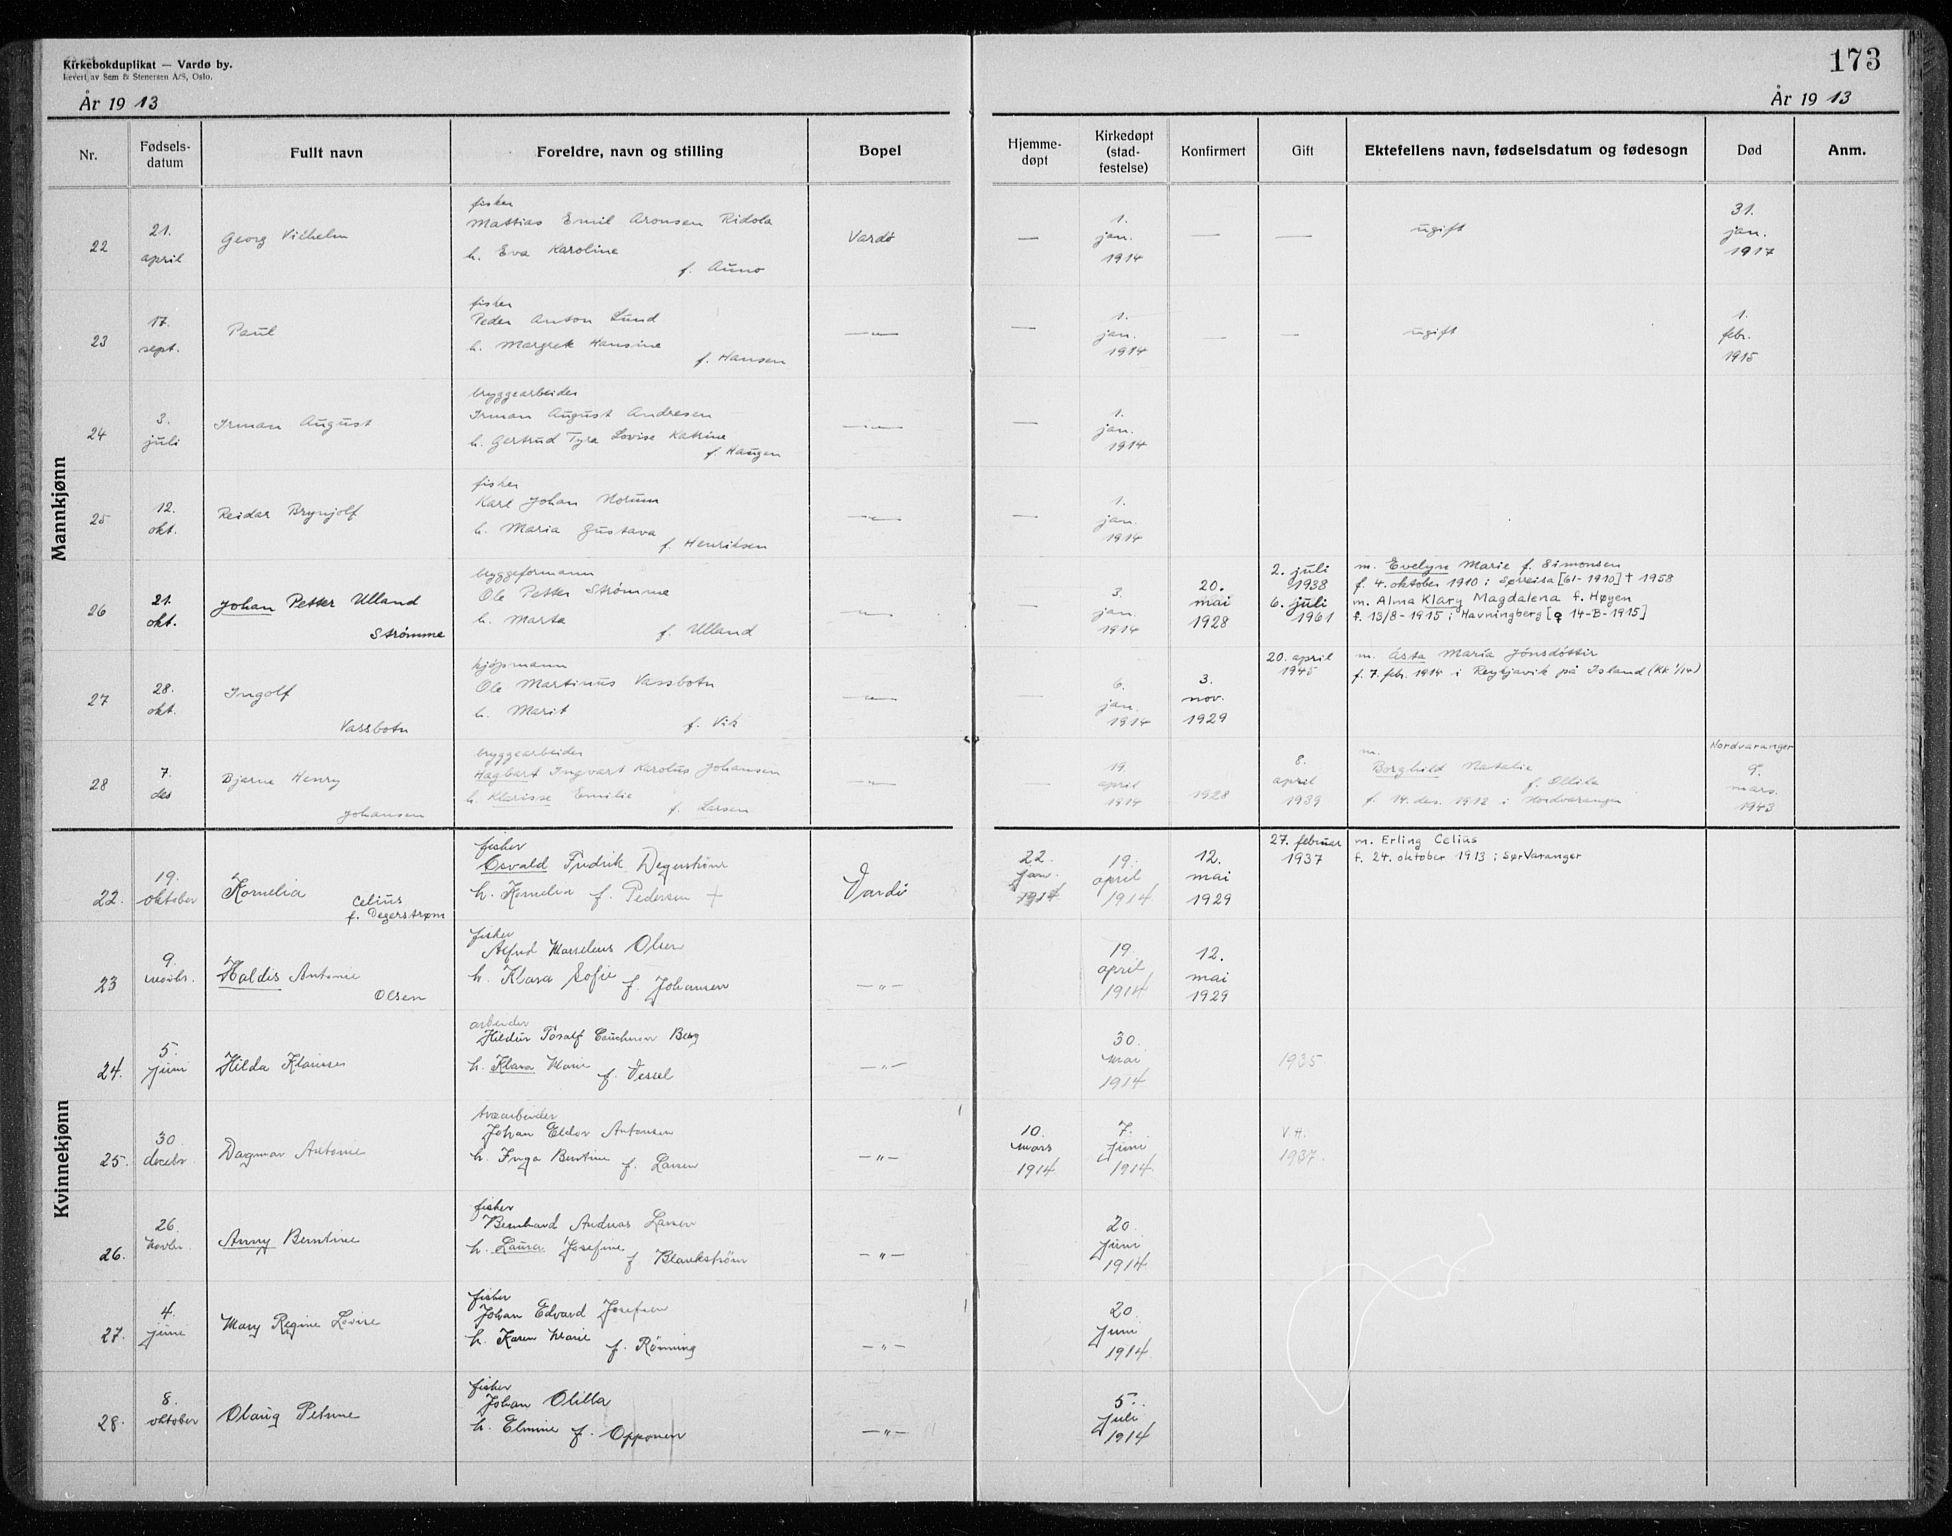 Kirkebokduplikat — Vardø by.
Levert av Sem & Stenersen A/S, Oslo.
173
År 1913
År 1913
Nr.
Fødsels-
datum
Fullt navn
Foreldre, navn og stilling
Bopel
Hjemme-
døpt
Kirkedøpt
(stad-
festelse)
Konfirmert
Gift
Ektefellens navn, fødselsdatum og fødesogn
Død
Anm.
Mannkjønn
22
21.
april
Georg Vilhelm
fisker
Mattias Emil Aronsen Ridola
h. Eva Karoline
f. Auno
Vardø
—
1.
jan.
1914
—
—
ugift
31.
jan.
1917
23
17.
sept.
Paul
fisker
Peder Anton Lund
h. Margrek Hansine
f. Hansen
—"—
—
1.
jan.
1914
—
—
ugift
1.
febr.
1915
24
3.
juli
Irman August
bryggearbeider
Irman August Andresen
h. Gertrud Tyra Lovise Katrine
f. Haugen
—"—
—
1.
jan.
1914
25
12.
okt.
Reidar Brynjolf
fisker
Karl Johan Norum
h. Maria Gustava
f. Henriksen
—"—
—
1.
jan.
1914
26
21.
okt.
Johan Petter Ulland
Strømme
bryggeformann
Ole Petter Strømme
h. Marta
f. Ulland
—"—
—
3.
jan.
1914
20.
mai
1928
2. juli
1938
6. juli
1961
m. Evelyn Marie f. Simonsen
f. 4. oktober 1910 i Sørreisa [61-1910] † 1958
m. Alma Klary Magdalena f. Høyen
f. 13/8-1915 i Havningberg [♀ 14-B-1915]
27
28.
okt.
Ingolf
Vassbotn
kjøpmann
Ole Martinus Vassbotn
h. Marit
f. Vik
—"—
—
6.
jan.
1914
3.
nov.
1929
20. april
1945
m. Ásta María Jónsdóttir
f. 7. feb. 1914 i Reykjavik på Island (KK 1/14)
28
7.
des
Bjarne Henry
Johansen
bryggearbeider
Hagbart Ingvart Karolus Johansen
h. Klarisse Emilie
f. Larsen
—"—
—
19.
april
1914
1928
8.
april
1939
m.
Borghild Natalie
f. Ollila
f. 14. des. 1912 i Nordvaranger
Nordvaranger
9.
mars.
1943
Kvinnekjønn
22.
19.
oktober
Kornelia
Celius
f. Degerstrøm
fisker
Osvald Fredrik Degerstrøm
h. Kornelia f. Pedersen +
Vardø
22.
jan.
1914
19.
april
1914
12.
mai
1929
27. februar
1937
m. Erling Celius
f. 24. oktober 1913 i SørVaranger
23
9.
novbr.
Haldis Antonie
Olsen
fisker
Alfred Marselius Olsen
h. Klara Sofie f. Johansen
—"—
19.
april
1914
12.
mai
1929
24.
5.
juni
Hilda
arbeider
Berg
h. Klara Marie f. Vessel
—"—
30.
mai
1914
1935
25.
30.
decebr.
Dagmar Antonie
Johan Eldor Antonsen
h. Inga Berntine f. Larsen
—"—
10.
mars
1914
7.
juni
1914
V.H.
1937.
26.
26.
novbr.
Anny Berntine
fisker
Bernhard Andreas Larsen
h. Laura Josefine f Blankstrøm
—"—
20.
juni
1914
27.
4.
juni
Mary Regine Lovise
fisker
Johan Edvard Josefsen
h. Karen Marie f. Rønning
—"—
20.
juni
1914
28.
8.
oktober
Olaug Petrine
fisker
Johan Olilla
h. Elmine f. Opponen
—"—
5.
juli
1914